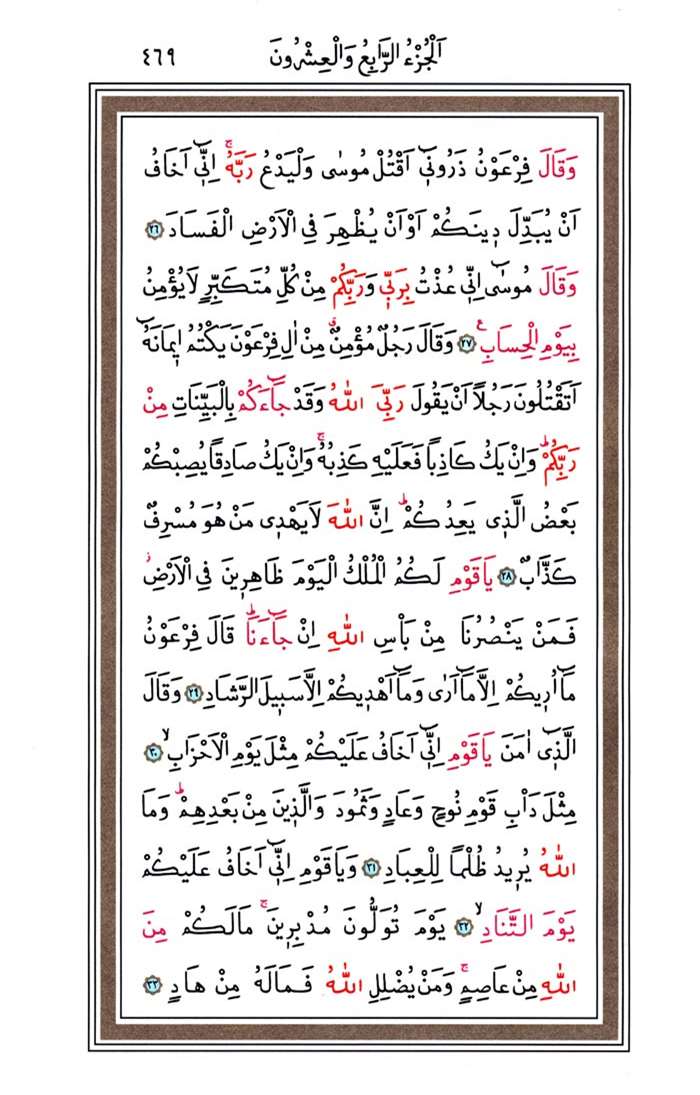 اَلْجُزْءُ الرَّابِعُ وَالْعِشْرُونَ ٤٦٩
وَقَالَ فِرْعَوْنُ ذَرُونٖٓي اَقْتُلْ مُوسٰى وَلْيَدْعُ رَبَّهُۚ اِنّٖٓي اَخَافُ
اَنْ يُبَدِّلَ دٖينَكُمْ اَوْ اَنْ يُظْهِرَ فِي الْاَرْضِ الْفَسَادَ ﴿٢٦﴾
وَقَالَ مُوسٰٓى اِنّٖي عُذْتُ بِرَبّٖي وَرَبِّكُمْ مِنْ كُلِّ مُتَكَبِّرٍ لَا يُؤْمِنُ
بِيَوْمِ الْحِسَابِࣖ ﴿٢٧﴾ وَقَالَ رَجُلٌ مُؤْمِنٌۗ مِنْ اٰلِ فِرْعَوْنَ يَكْتُمُ اٖيمَانَهُٓ
اَتَقْتُلُونَ رَجُلاً اَنْ يَقُولَ رَبِّيَ اللّٰهُ وَقَدْ جَٓاءَكُمْ بِالْبَيِّنَاتِ مِنْ
رَبِّكُمْؕ وَاِنْ يَكُ كَاذِباً فَعَلَيْهِ كَذِبُهُۚ وَاِنْ يَكُ صَادِقاً يُصِبْكُمْ
بَعْضُ الَّذٖي يَعِدُكُمْؕ اِنَّ اللّٰهَ لَا يَهْدٖي مَنْ هُوَ مُسْرِفٌ
كَذَّابٌ ﴿٢٨﴾ يَا قَوْمِ لَكُمُ الْمُلْكُ الْيَوْمَ ظَاهِرٖينَ فِي الْاَرْضِؗ
فَمَنْ يَنْصُرُنَا مِنْ بَأْسِ اللّٰهِ اِنْ جَٓاءَنَاؕ قَالَ فِرْعَوْنُ
مَٓا اُرٖيكُمْ اِلَّا مَٓا اَرٰى وَمَٓا اَهْدٖيكُمْ اِلَّا سَبٖيلَ الرَّشَادِ ﴿٢٩﴾ وَقَالَ
الَّذٖٓي اٰمَنَ يَا قَوْمِ اِنّٖٓي اَخَافُ عَلَيْكُمْ مِثْلَ يَوْمِ الْاَحْزَابِۙ ﴿٣٠﴾
مِثْلَ دَأْبِ قَوْمِ نُوحٍ وَعَادٍ وَثَمُودَ وَالَّذٖينَ مِنْ بَعْدِهِمْؕ وَمَا
اللّٰهُ يُرٖيدُ ظُلْماً لِلْعِبَادِ ﴿٣١﴾ وَيَا قَوْمِ اِنّٖٓي اَخَافُ عَلَيْكُمْ
يَوْمَ التَّنَادِۙ ﴿٣٢﴾ يَوْمَ تُوَلُّونَ مُدْبِرٖينَۚ مَا لَكُمْ مِنَ
اللّٰهِ مِنْ عَاصِمٍۚ وَمَنْ يُضْلِلِ اللّٰهُ فَمَا لَهُ مِنْ هَادٍ ﴿٣٣﴾